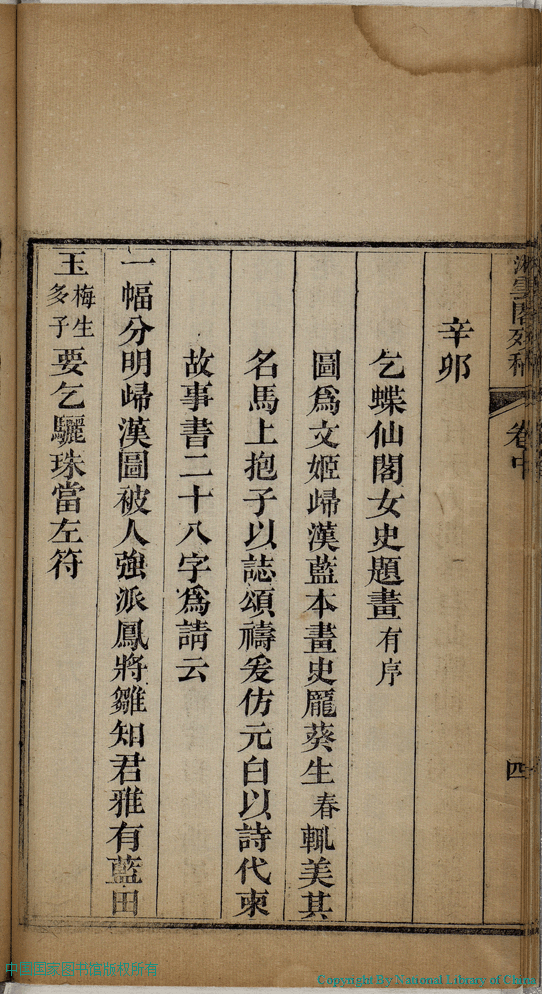 辛卯
乞蝶仙閣女史題畫有序
圖爲文姬歸漢藍本畫史龐葵生春輒美其
名馬上抱子以誌頌禱爰仿元白以詩代柬
故事書二十八字爲請云
一幅分明歸漢圖被人強派鳳將雛知君雅有藍田
玉梅生多子要乞驪珠當左符
雲閣
卷中
四
中国国家图书馆版权所有
Copyright By National Library of China